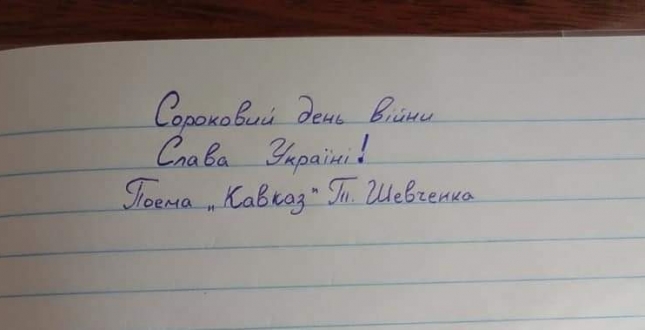 Сороковий день війни
Слава Україні!
Поема „Кавказ" Т. Шевченка